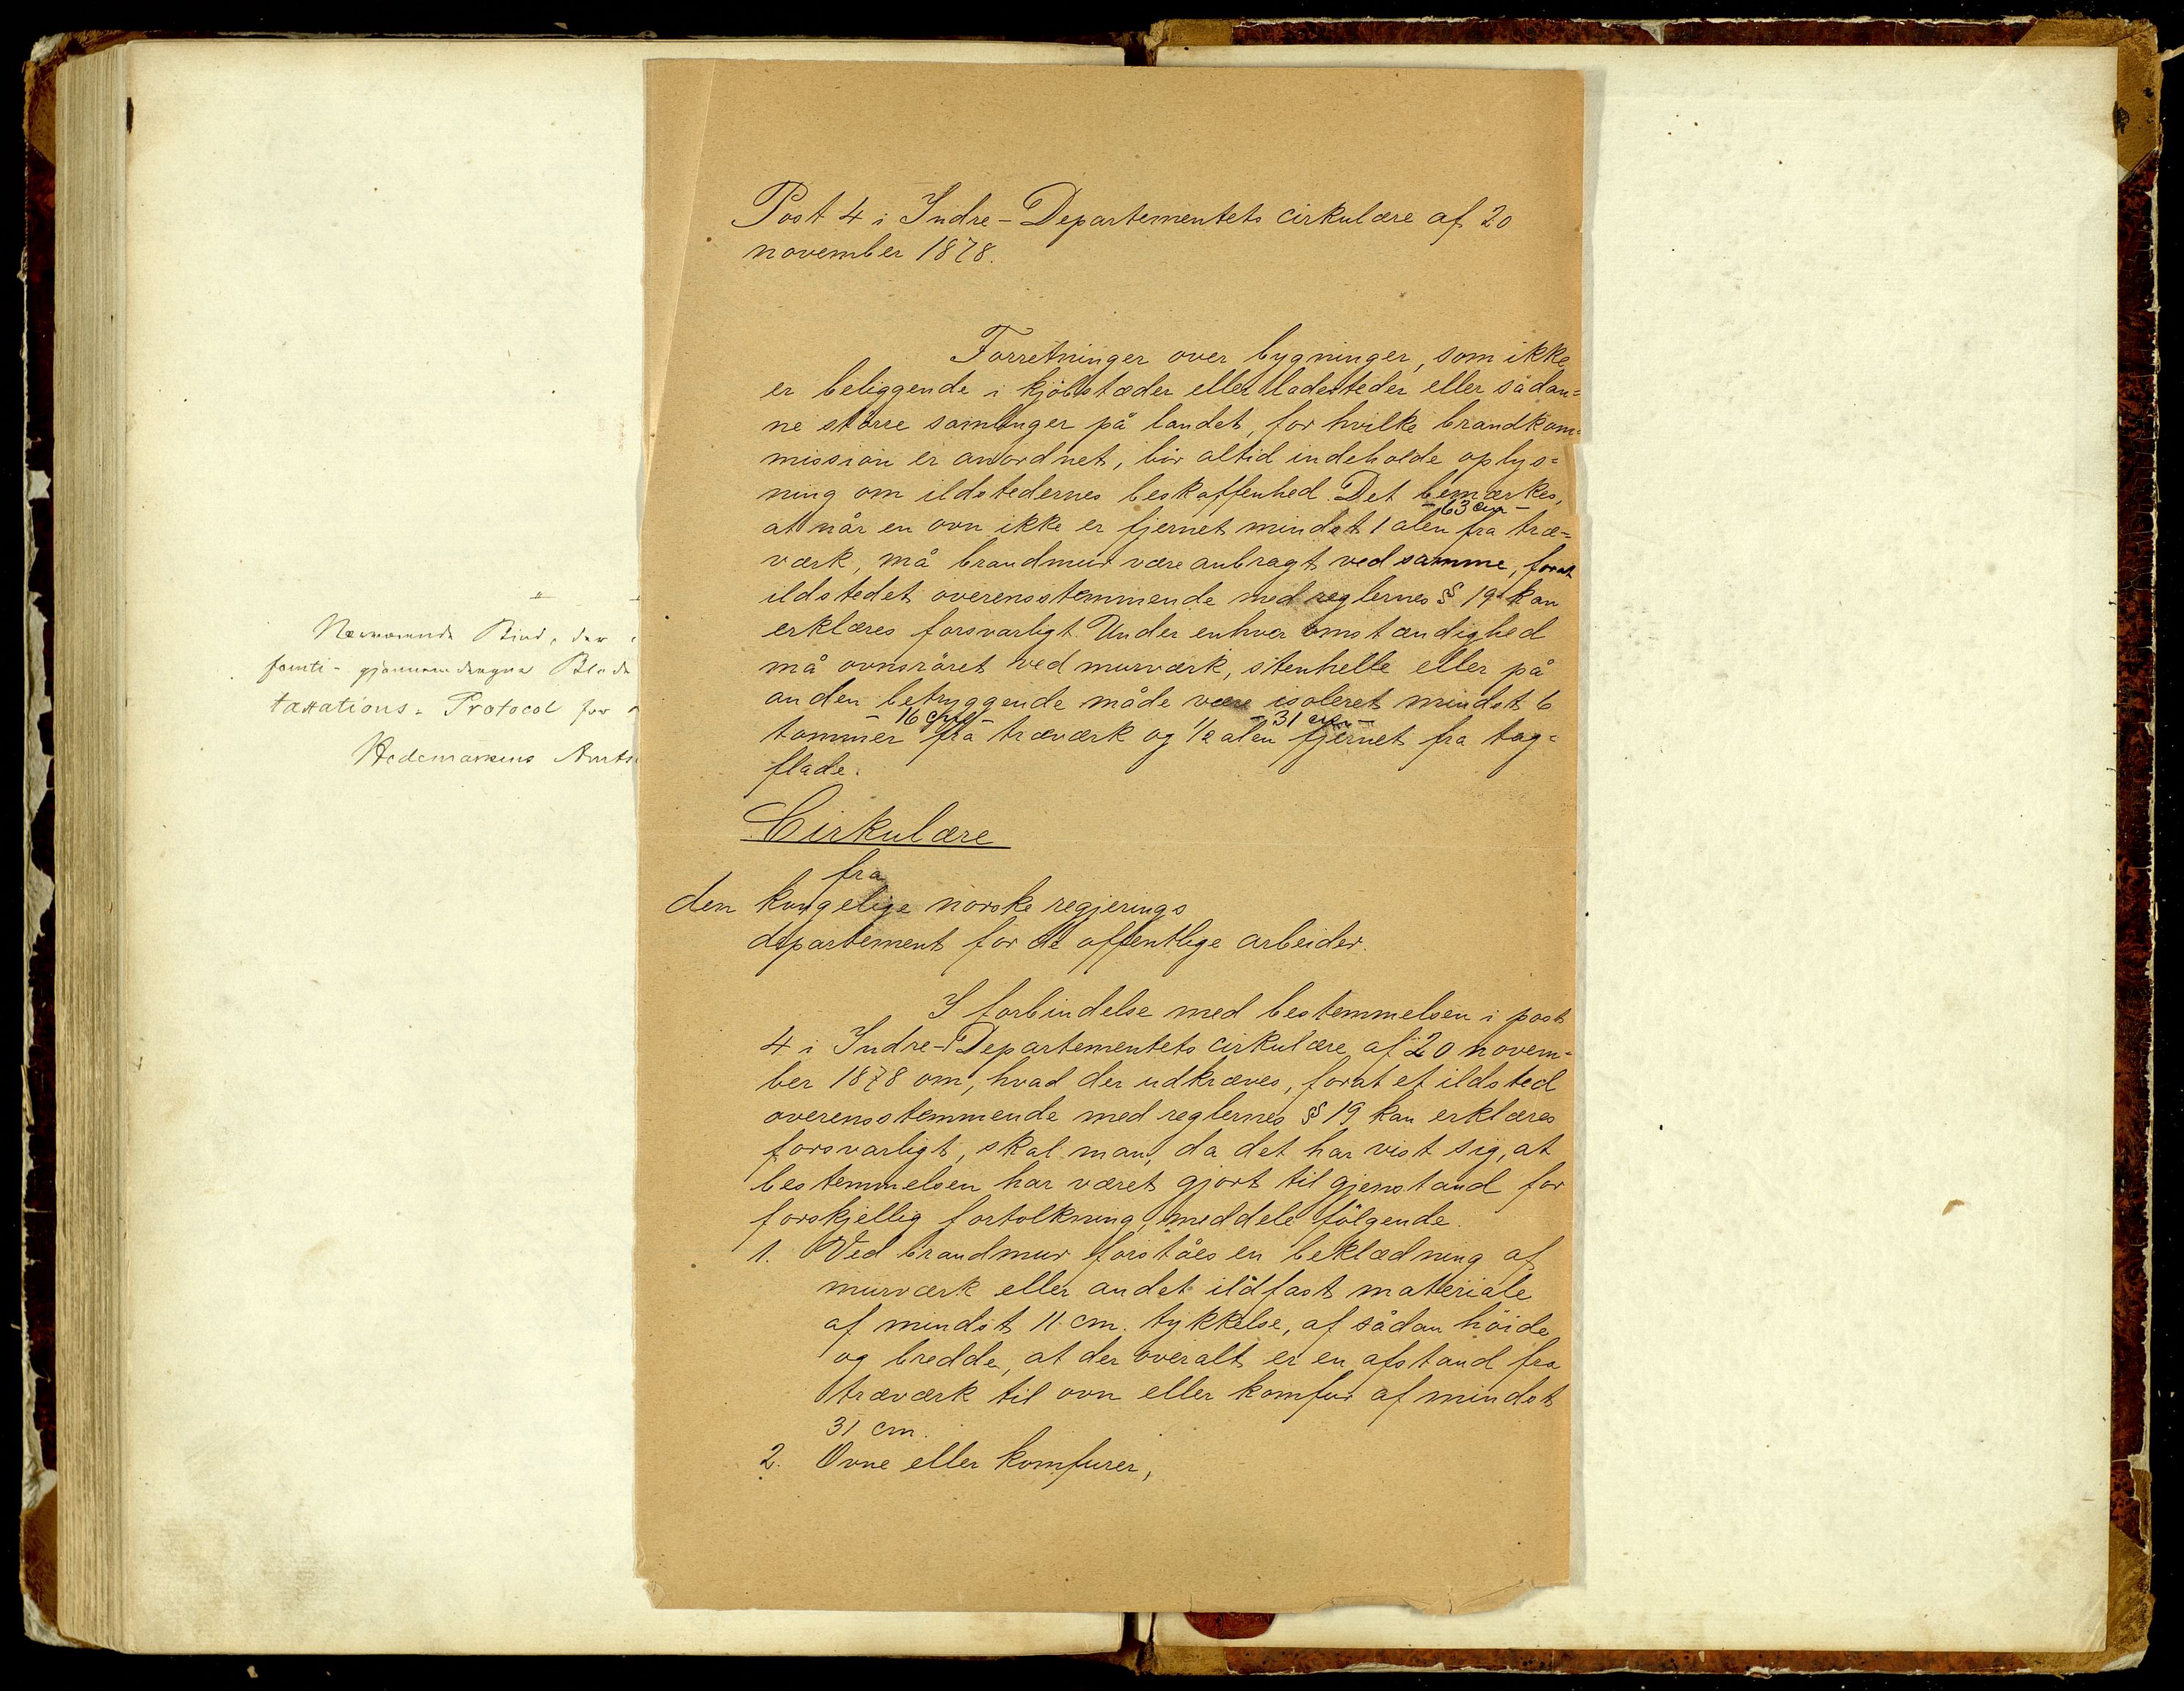 Nærværende Bind, der
femti- gjennemdragne Blade
taxations- Protocol for
Hedemarkens Amts
Post 4 i Indre-Departementets cirkulære af 20
november 1878.
Forretninger over bygninger, som ikke
er beliggende i kjöbstæder eller ladesteder eller sådan=
ne större samlinger på landet, for hvilke brandkom=
mission er anordnet, bör altid indeholde oplys=
ning om ildstedernes beskaffenhed. Det bemærkes,
- 63 cm -
at når en ovn ikke er fjernet mindst 1 alen fra træ=
værk, må brandmur være anbragt ved samme, forat
ildstedet overensstemmende med reglernes § 19 kan
erklæres forsvarligt. Under enhver omstændighed
må ovnsröret ved murværk, stenhelle eller på
anden betryggende måde være isoleret mindst 6
- 16 cm - - 31 cm -
tommer fra træværk og 1/2 alen fjernet fra tag=
flade.
Cirkulære
fra
den kongelige norske regjerings
departement for de offentlige arbeider.
I forbindelse med bestemmelsen i post
4 i Indre-Departementets cirkulære af 20 novem=
ber 1878 om, hvad der udkræves, forat et ildsted
overensstemmende med reglernes § 19 kan erklæres
forsvarligt, skal man, da det har vist sig, at
bestemmelsen har været gjort til gjenstand for
forskjellig fortolkning, meddele fölgende.
1. Ved brandmur forståes en beklædning af
murværk eller andet ildfast materiale
af mindst 11 cm. tykkelse, af sådan höide
og bredde, at der overalt er en afstand fra
træværk til ovn eller komfur af mindst
31 cm.
2. Ovne eller komfurer,